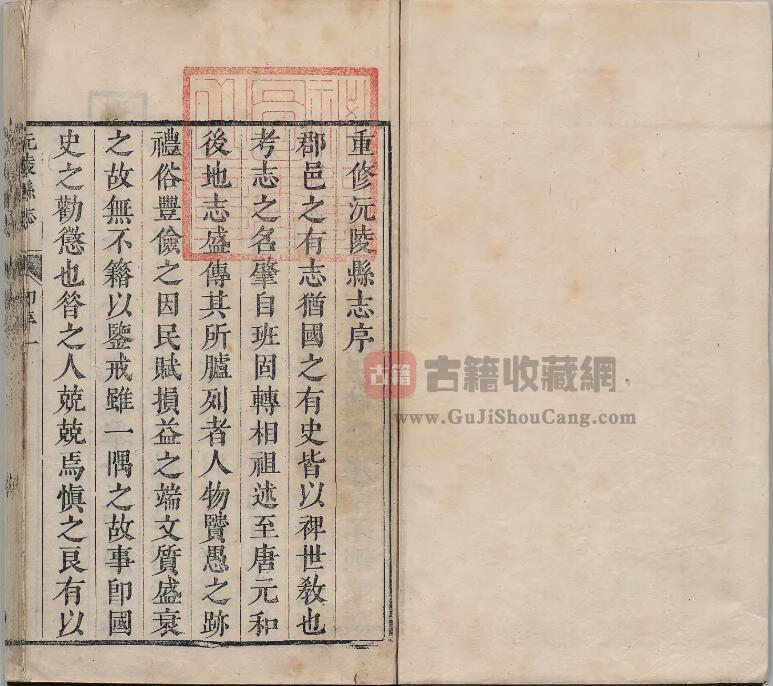 重修沅陵縣志序
郡邑之有志猶國之有史皆以裨世教也
考志之名肇自班固轉相祖述至唐元和
後地志盛傳其所臚列者人物賢愚之跡
禮俗豐儉之因民賦損益之端文質盛衰
之故無不籍以鑒戒雖一隅之故事即國
史之勸懲也昝之人兢兢焉慎之良有以
沅陵縣志
古籍 古籍收藏網
www.GuJiShouCang.com